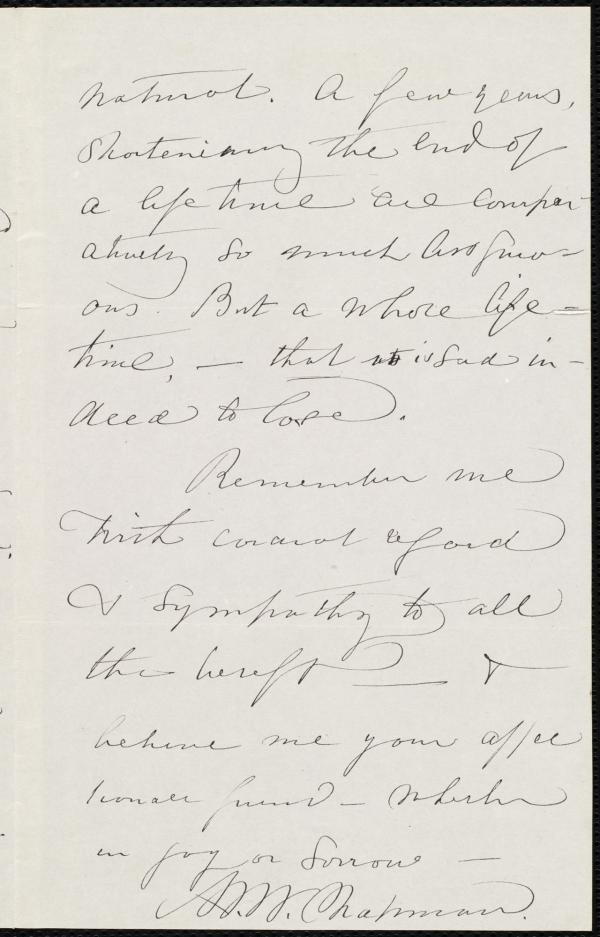 natural. A few years,
shortening the end of
a life time are compar-
atively so much less griev-
ous. But a whole life-
time, — that is sad in-
deed to lose.
Remember me
with cordial regard
& sympathy to all
the bereft — &
believe me your affec
tionate friend — whether
in joy or sorrow —
M. W. Chapman.